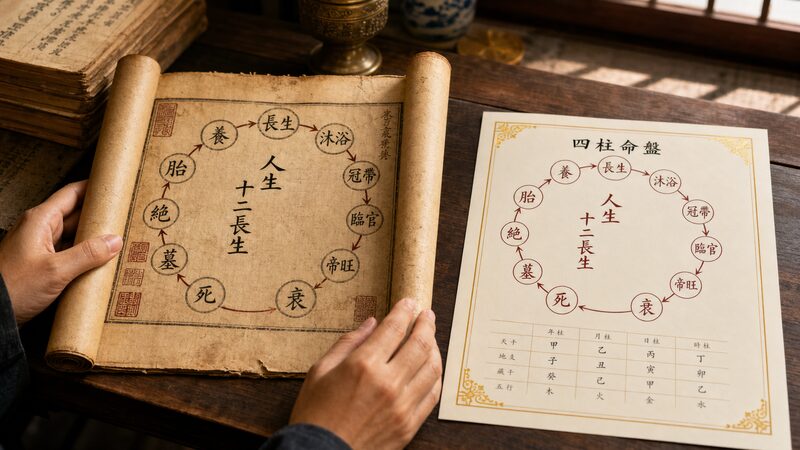 長生
沐浴
冠帶
臨官
帝旺
衰
死
墓
絕
胎
養
人生
十二長生
四柱命盤
長生
沐浴
冠帶
臨官
帝旺
衰
死
墓
絕
胎
養
人生
十二長生
年柱 月柱 日柱 時柱
天干 甲 乙 丙 丁
地支 子 丑 寅 卯
藏干 癸 己 甲 乙
五行 木 火 金 水